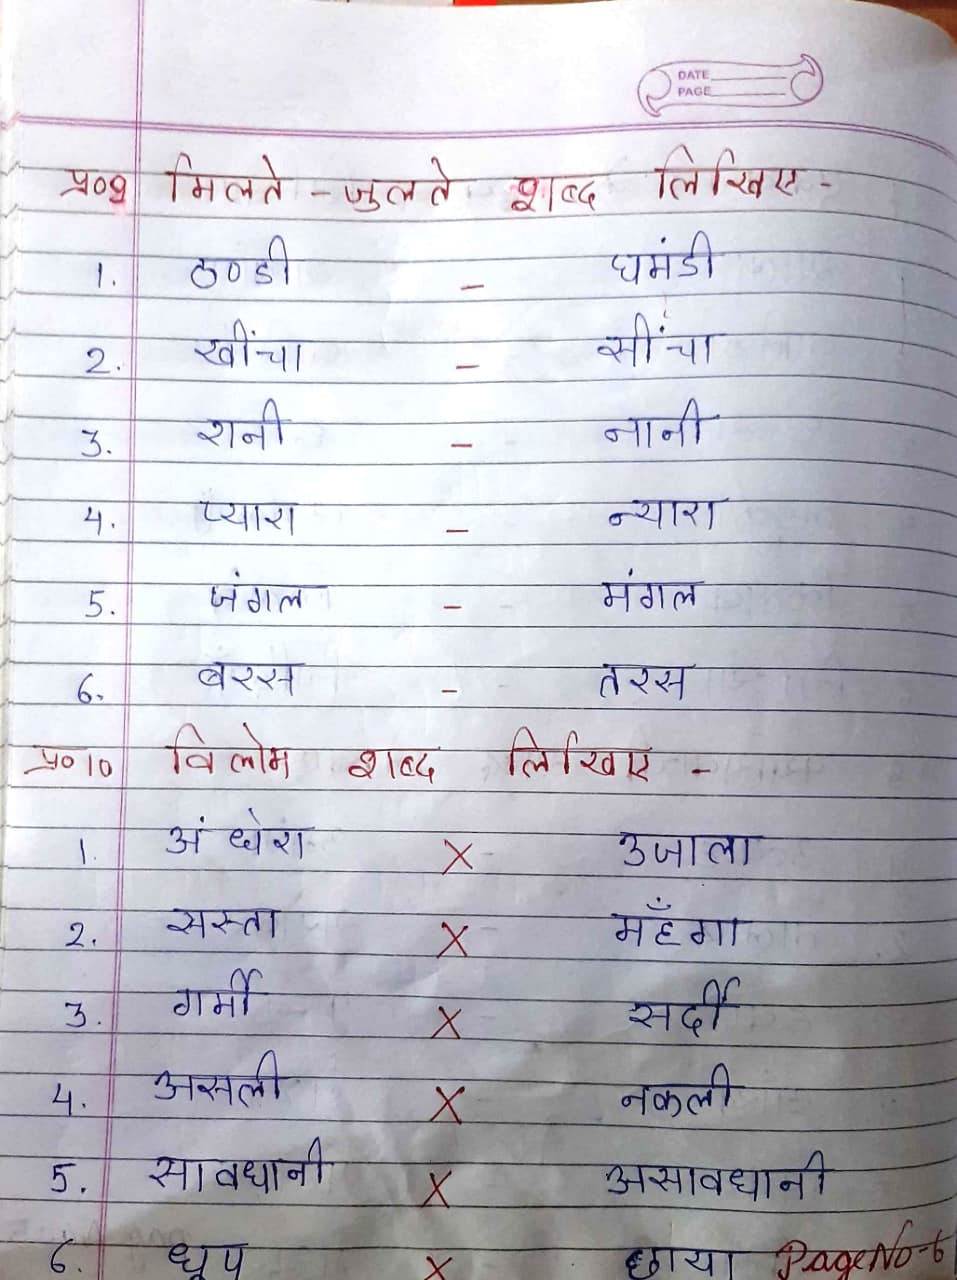 DATE
PAGE
प्र०9 मिलते - जुलते शब्द लिखिए -
1. ठण्डी - घमंडी
2. खींचा - सींचा
3. रानी - नानी
4. प्यारा - न्यारा
5. जंगल - मंगल
6. बरस - तरस
प्र०10 विलोम शब्द लिखिए -
1. अंधेरा × उजाला
2. सस्ता × महँगा
3. गर्मी × सर्दी
4. असली × नकली
5. सावधानी × असावधानी
6. धूप × छाया PageNo-6